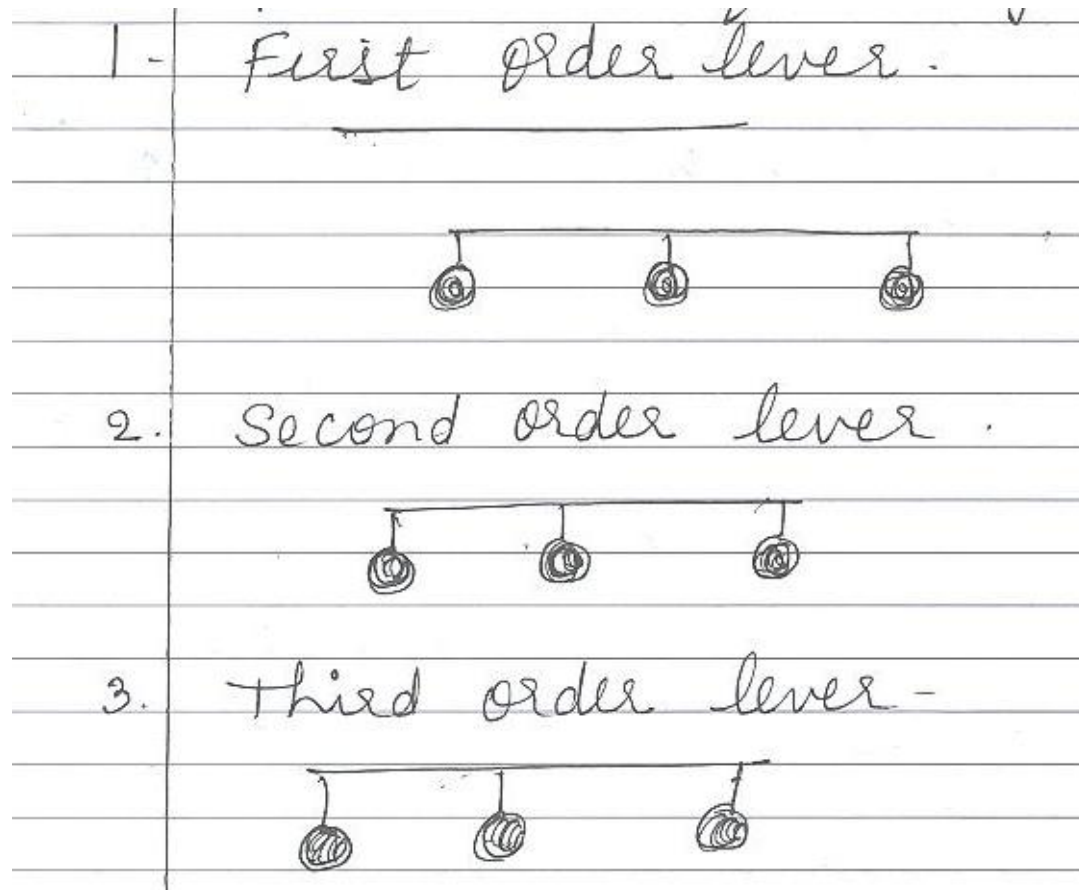 1- First order lever.
2. Second order lever.
3. Third order lever-